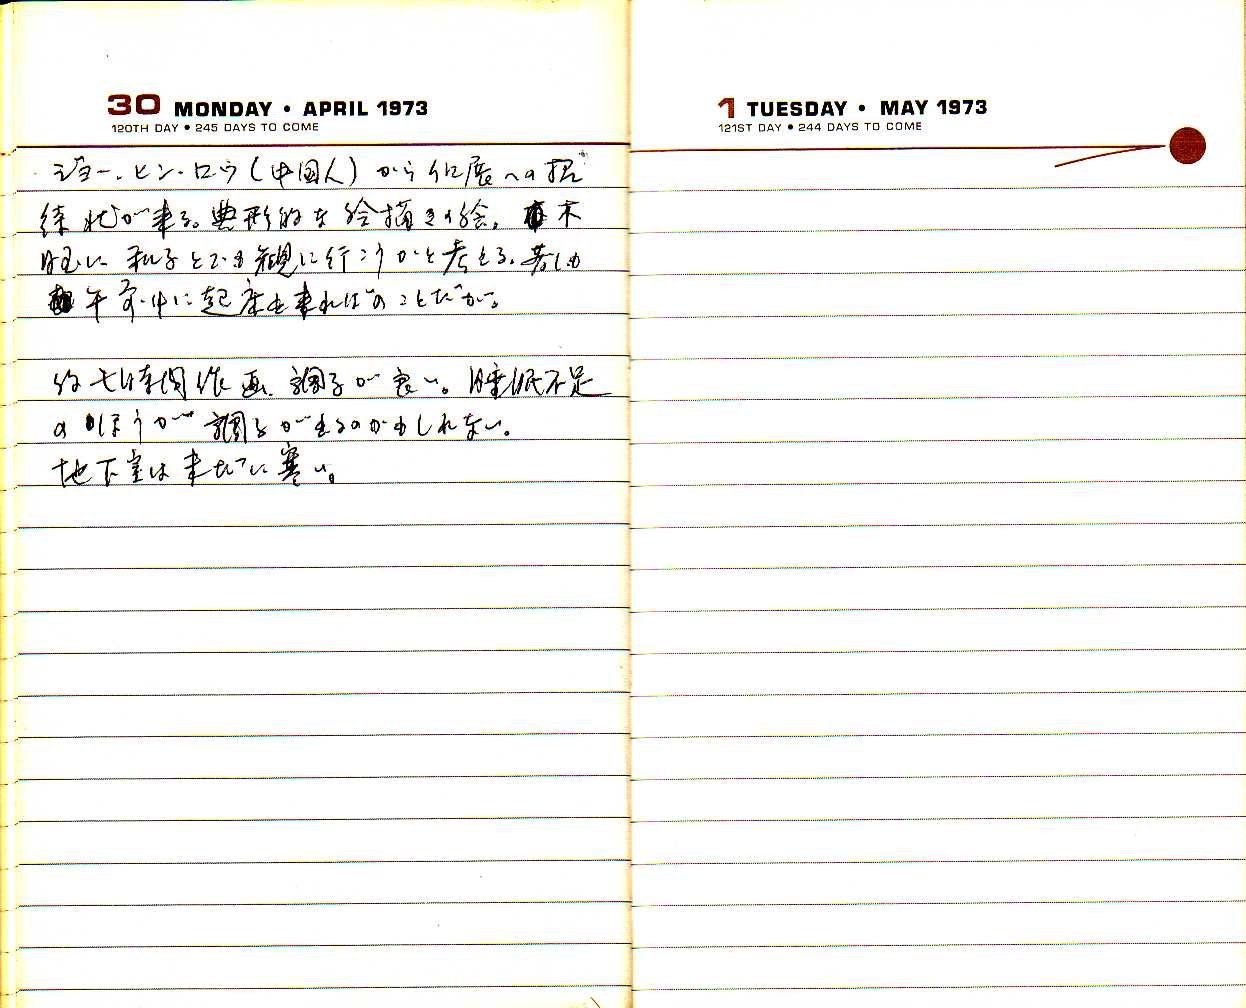 30 MONDAY • APRIL 1973
120TH DAY • 245 DAYS TO COME
ジョー・ヒン・ロウ(中国人)から個展への招
待状が来る。典形的な絵描きの絵。木
曜に和子とでも観に行こうかと考える。若しも
午前中に起床出来ればのことだが。
約七時間作画。調子が良い。睡眠不足
のほうが調子が出るのかもしれない。
地下室は未だに寒い。
1 TUESDAY • MAY 1973
121ST DAY • 244 DAYS TO COME